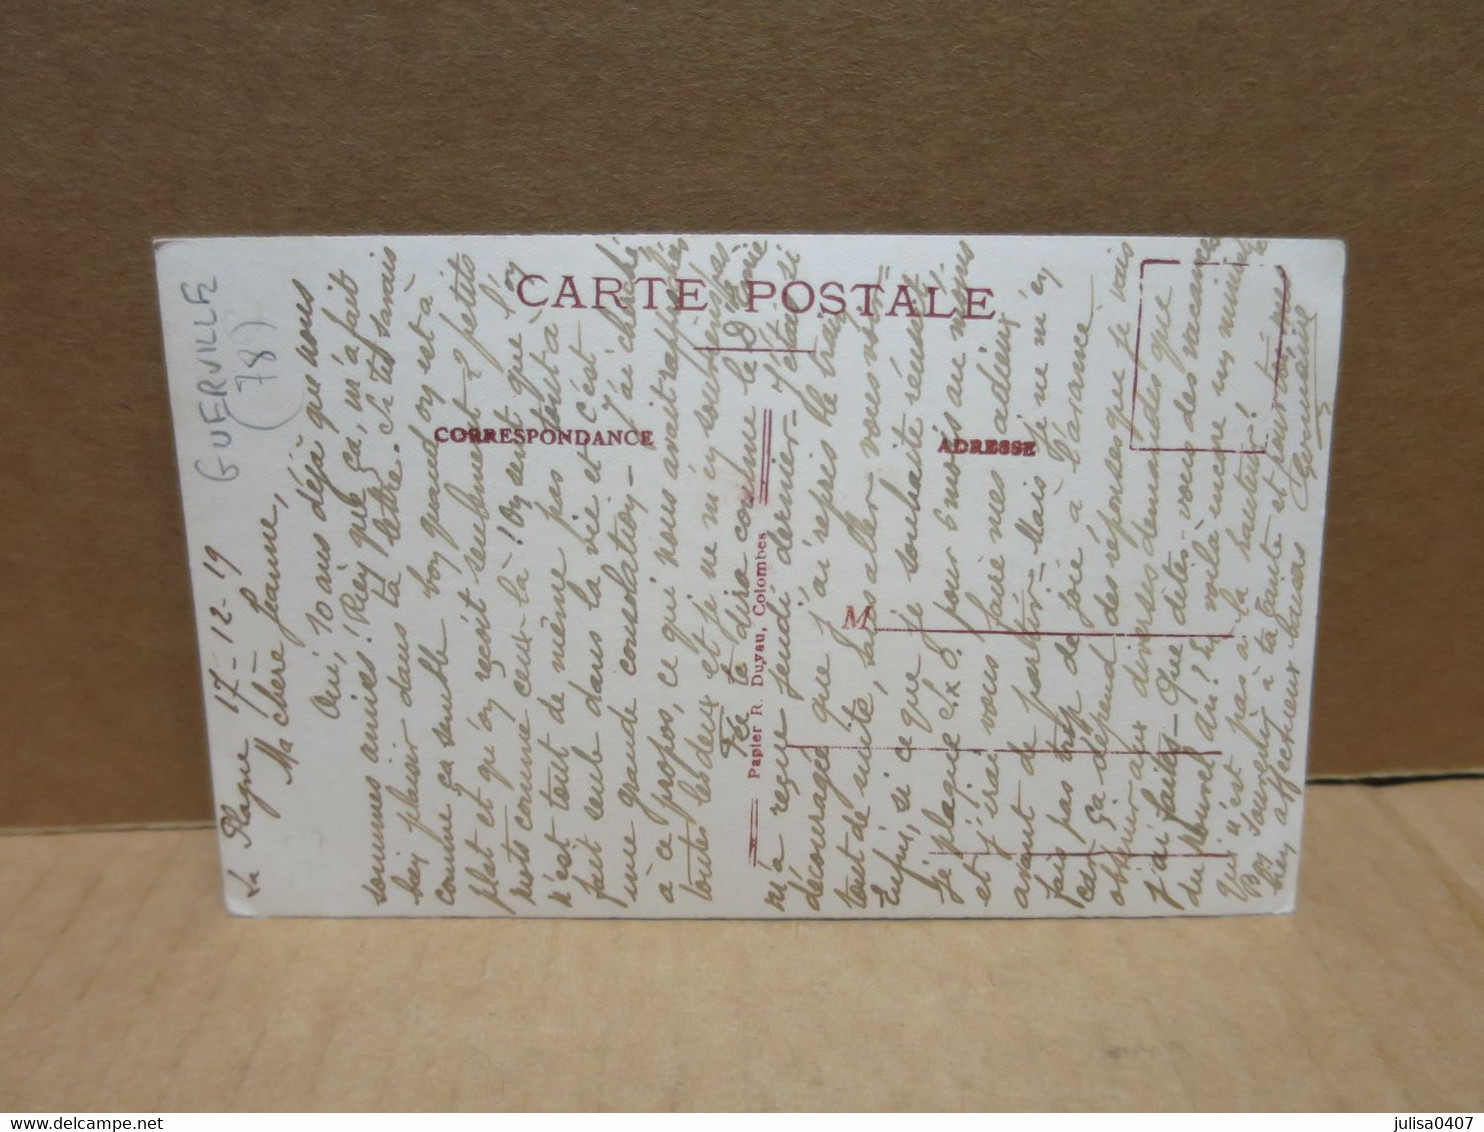 GUERVILLE
(78)
CARTE POSTALE
CORRESPONDANCE
ADRESSE
M
Papier R. Duyau, Colombes
La Plagne 17-12-19
Ma chère Jeanne,
Oui, 10 ans déjà que nous
sommes amies! Rien que ça, m'a fait
bien plaisir dans ta lettre. Si tu savais
comme ça semble bon quand on est à
plat et qu'on reçoit seulement 2 petits
mots comme ceux-là! On sent que l'on
n'est tout de même pas tout à
fait seule dans la vie et c'est
une grande consolation - J'ai
à ce propos, ce qui nous avait rapprochées
toutes les deux et je
te dira comme le 9
m'a reçue jeudi dernier - J'étais si
découragée que j'ai repris le train
tout de suite, sans aller vous voir =
Enfin, si ce que je souhaite réussit
Je plaque pour 6 mois au moins
et j'irai vous faire mes adieux
avant de partir - Mais je ne m'en
fais pas trop de joie à l'avance.
Ça dépend des réponses que je vais
obtenir aux diverses demandes que
j'ai faites - Que dites-vous des vacances
du nouvel an? En voilà encore un ministre
qui n'est pas à la hauteur!
Bon souvenir à ta tante et pour toi mes
bien affectueux baisers